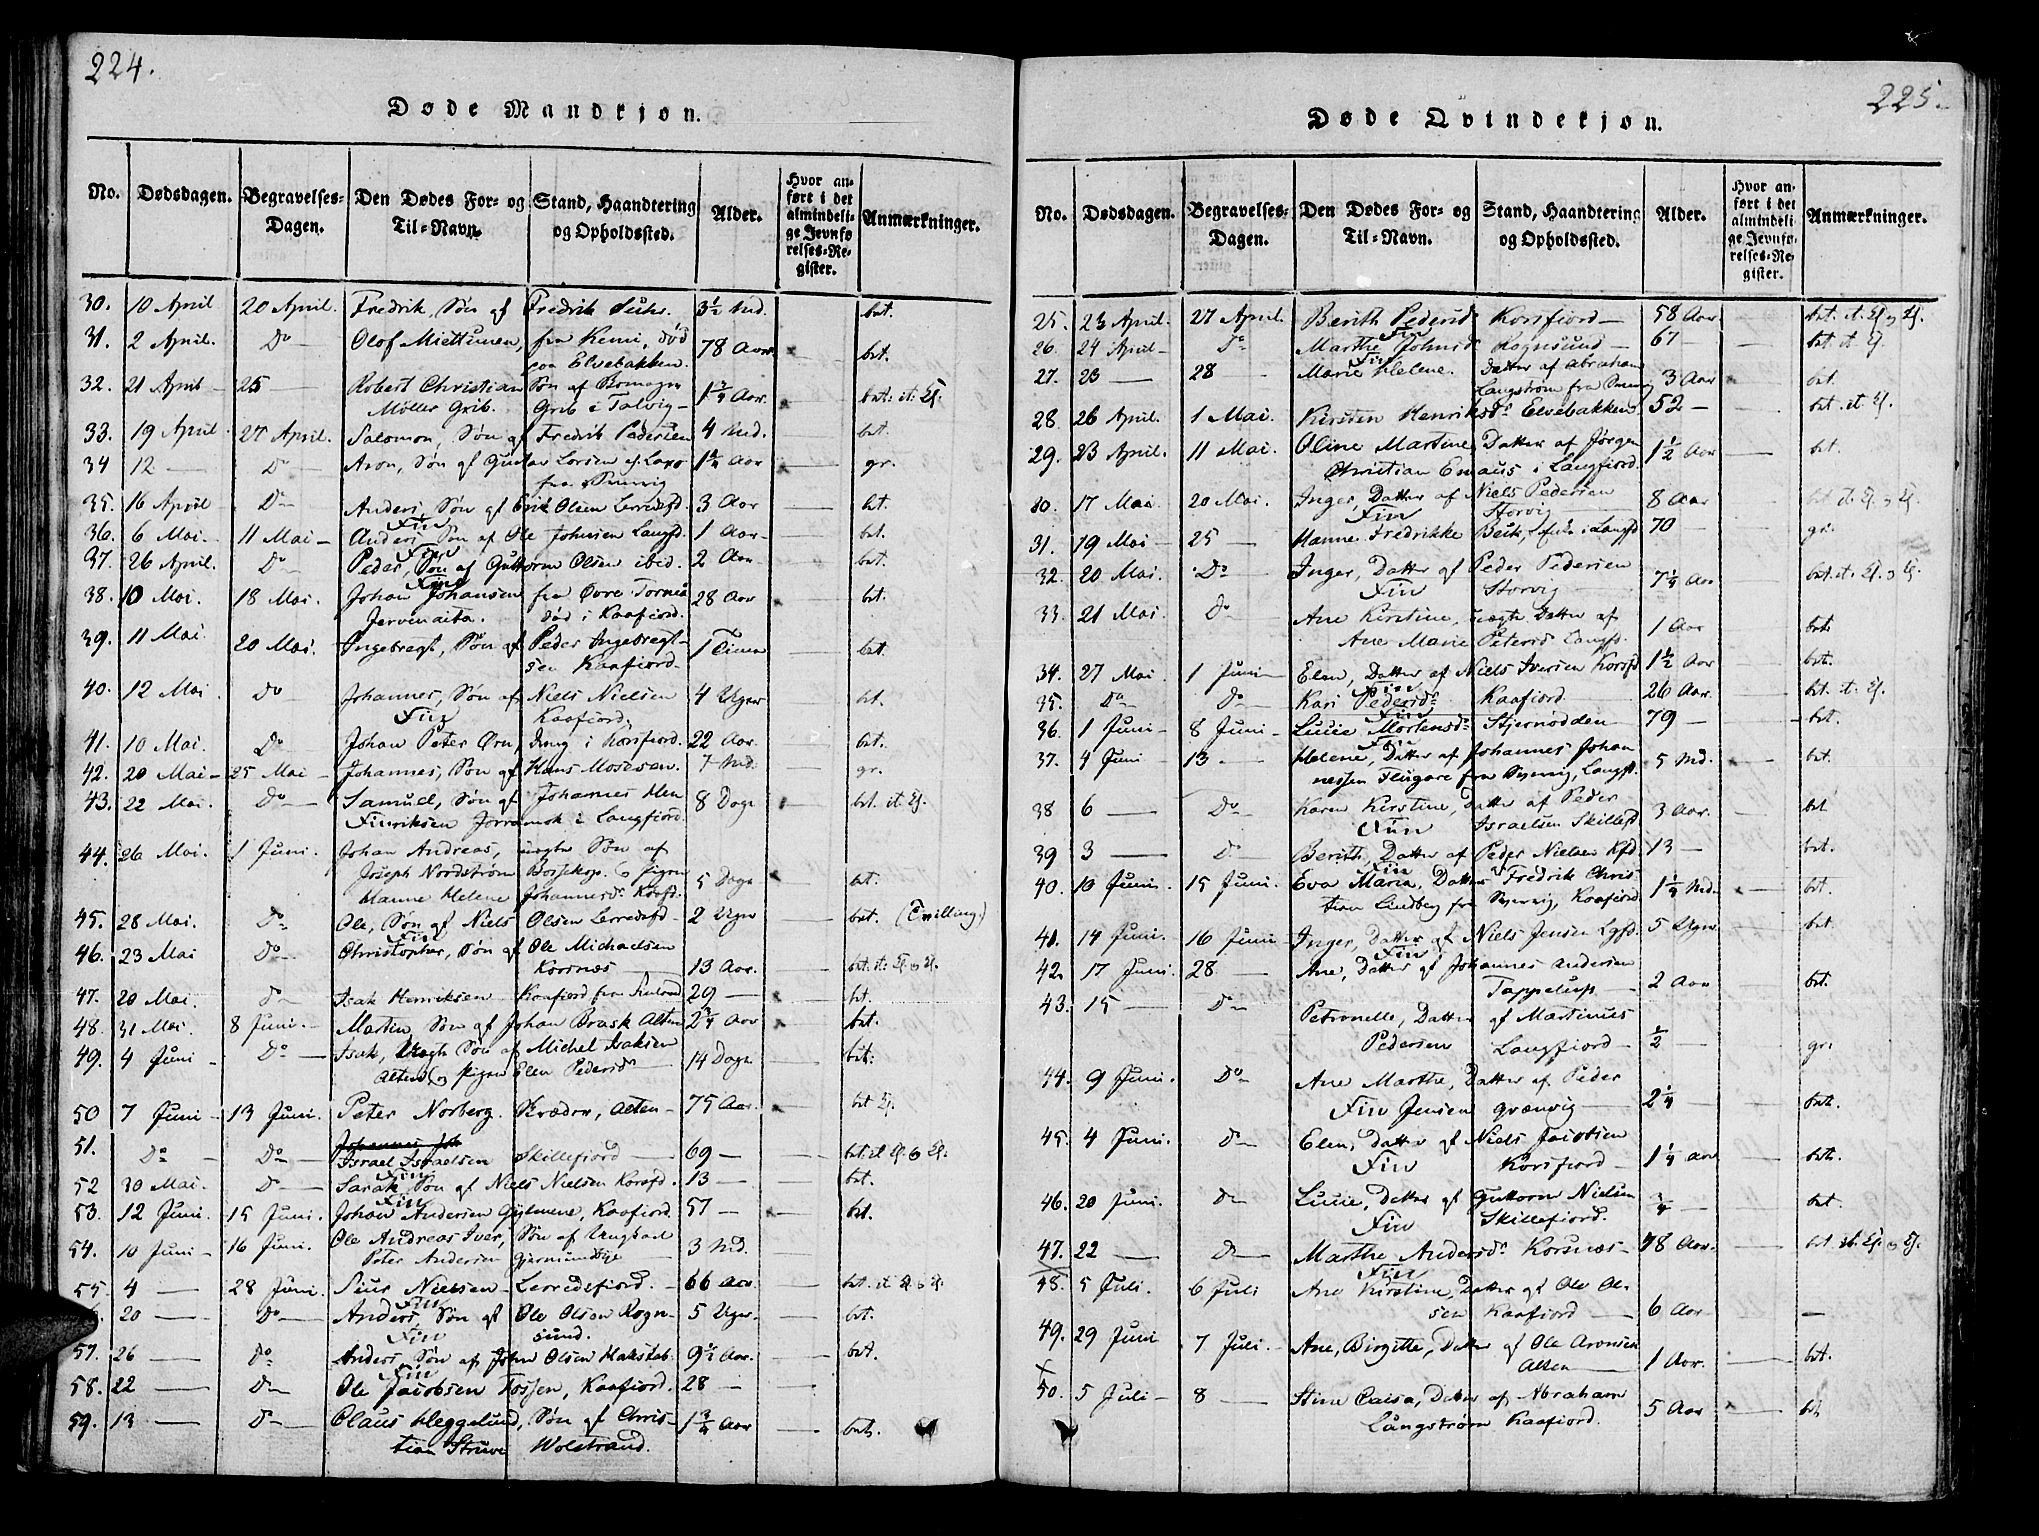 224.
Døde Mandkjøn.
No. Dødsdagen. Begravelses-Dagen. Den Dødes For- og Til-Navn. Stand, Haandtering og Opholdssted. Alder. Hvor anført i det almindelige Jevnførelses-Register. Anmærkninger.
30. 10 April 20 April. Fredrik, Søn af Fredrik 3½ Md. bet.
31. 2 April. Do Olof Miettunen, fra Kemi, død 78 Aar. bet.
paa Elvebakken.
32. 21 April 25 Robert Christian Søn af 1¾ Aar.
Møller Grib. Grib i Talvig
33. 19 April. 27 April. Salomon, Søn af Fredrik Pedersen 4 Md. bet.
34 12 — Do Aron, Søn af Gustav Larsen 1¼ Aar gr.
fra
35. 16 April Do Anders, Søn af Erik Olsen Lerredsfd. 3 Aar bet.
Fin
36. 6 Mai. 11 Mai Anders Søn af Ole Johnsen Langfd. 1 Aar bet.
Fin
37. 26 April. Do Peder, Søn af Guttorm Olsen ibid. 2 Aar bet.
Fin
38. 10 Mai. 18 Mai. Johan Johansen fra Øvre Torneå 28 Aar bet.
død i Kaafjord.
39. 11 Mai 20 Mai. Ingebregt, Søn af Peder Ingebregt- 1 Timer bet.
sen Kaafiord
40. 12 Mai Do Johannes, Søn af Niels Nielsen 4 Uger bet.
Fin Kaafiord.
41. 10 Mai. Do Johan Peter Ørn, Dreng i Korsfiord. 22 Aar. bet.
42. 20 Mai 25 Mai Johannes, Søn af Hans Mosesen. 7 Md. gr.
43. 22 Mai. Do Samuel, Søn af Johannes Hen 8 Dage
riksen i Langfiord.
44. 26 Mai. 1 Juni. Johan Andreas, uegte Søn af
Joseph Nordstrøm Bossekop. & Pigen 5 Dage bet.
Hanne Helene Johannesd. Kaafd.
45. 28 Mai. Do Ole, Søn af Niels Olsen Lerredsfd 2 Uger bet. (Tvilling.)
Fin
46. 23 Mai Do Christopher, Søn af Ole Michaelsen
Korsnæs 13 Aar.
47. 20 Mai. Do Isak Henriksen Kaafiord fra 29 — bet.
48. 31 Mai. 8 Juni. Martin, Søn af Johan Brask Alten 2¾ Aar bet.
49. 4 Juni Do Isak, Uegte Søn af Michel Isaksen 14 Dage bet:
Alten & Pigen Elen Pedersd
50 7 Juni 13 Juni. Peter Norberg. Skræder, Alten 75 Aar.
51. Do Do Israel Israelsen Skillefiord 69 —
Fin
52 30 Mai. Do Sarak Søn af Niels Nielsen Korsfd. 13 — bet.
Fin
53. 12 Juni. 15 Juni. Johan Andersen Kaafiord. 57 — bet.
54. 10 Juni 16 Juni. Ole Andreas Iver, Søn af
Peter Andersen 3 Md.
55. 4 — 28 Juni. Siur Nielsen Lerredsfiord. 66 Aar.
Fin
20 — Do Anders, Søn af Ole Olsen Rogn- 5 Uger. bet.
Fin sund.
57. 26 — Do Anders Søn af John Olsen 9½ Aar. bet.
Fin
58. 22 — Do Ole Jacobsen Kaafiord. 28 —
59. 13 — Do Claus Heggelund, Søn af Chris- 1¾ Aar bet.
tian Struve Wolstrand.
225.
Døde Qvindekjøn.
No. Dødsdagen. Begravelses-Dagen. Den Dødes For- og Til-Navn. Stand, Haandtering og Opholdssted. Alder. Hvor anført i det almindelige Jevnførelses-Register. Anmærkninger.
25. 23 April. 27 April. Berith Pedersd Korsfiord 58 Aar
Fin
26. 24 April Do Marthe Johnsd Rognsund 67 —
Fin
27. 23 — 28 — Marie Helene. Datter af Abraham 3 Aar bet.
Langstrøm fra
28. 26 April. 1 Mai. Kirsten Henriksd. Elvebakken 52 —
29. 23 April. 11 Mai. Oline Martine, Datter af Jørgen 1½ Aar bet.
Christian Emaus i Langfiord.
30. 17 Mai. 20 Mai. Inger, Datter af Niels Pedersen 8 Aar
Fin Storvig
31. 19 Mai 25 — Hanne Fredrikke Beck, i Langfd 70 gr.
32. 20 Mai. Do Inger, Datter af Peder Pedersen 7¼ Aar
Fin Storvig
33. 21 Mai Do Ane Kirstine, uegte Datter af
Ane Marie Petersd Langfd. 1 Aar bet.
34. 27 Mai 1 Juni Elen, Datter af Niels Iversen Korsfd 1½ Aar bet.
Fin
35. Do Do Kari Pedersd. Kaafiord 26 Aar.
Fin
36. 1 Juni 8 Juni Lucie Mortensd. Stjernødden 79 — bet.
Fin
37. 4 Juni 13 — Helene, Datter af Johannes Johan 5 Md. bet.
nessen fra Langfd.
38 6 — Do Karen Kirstine, Datter af Peder 3 Aar. bet
Fin Israelsen Skillefd.
39 3 — Do Berith, Datter af Peder Nielsen Kfd. 13 — bet.
Fin
40. 10 Juni. 15 Juni. Eva Maria, Datter af Fredrik Chris 1¼ Md. bet.
tian Lindberg fra Kaafiord.
41. 14 Juni. 16 Juni Inger, Datter af Niels Jensen Lgfd. 5 Uger. bet.
Fin
42. 17 Juni. 28 — Ane, Datter af Johannes Andersen 2 Aar bet.
Tappeluft
43. 15 — Do Petronelle, Datter af Martinus
Pedersen Langfiord ½ — gr.
44. 9 Juni. Do Ane Marthe, Datter af Peder
Fin Jensen 2¼ — bet.
45. 4 Juni. Do Elen, Datter af Niels Jacobsen
Fin Korsfiord 1¼ Aar bet.
46. 20 Juni. Do Lucie, Datter af Guttorm Nielsen ¾ — bet.
Fin Skillefiord.
47. 22 — Do Marthe Andersd. Korsnæs 48 Aar.
Fin
48. 5 Juli. 6 Juli Ane Kirstine, Datter af Ole Ol-
sen Kaafiord 6 Aar —
49. 29 Juni 7 Juli. Ane Birgitte, Datter af Ole Aronsen
Alten 1 Aar. bet.
50. 5 Juli 8 — Stine Caisa, Datter af Abraham 5 Aar bet
Långstrøm Kaafiord.